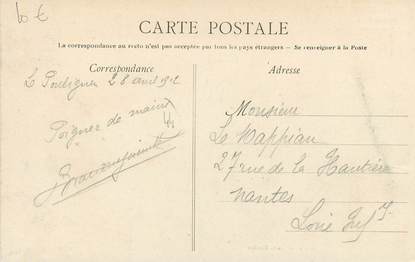 10 €
CARTE POSTALE
La correspondance au recto n'est pas acceptée par tous les pays étrangers — Se renseigner à la Poste
Correspondance
Le Pouliguen 28 avril 1912
Poignée de mains
Adresse
Monsieur
Le Mappian
27 rue de la Hautière
Nantes
Loire Inf